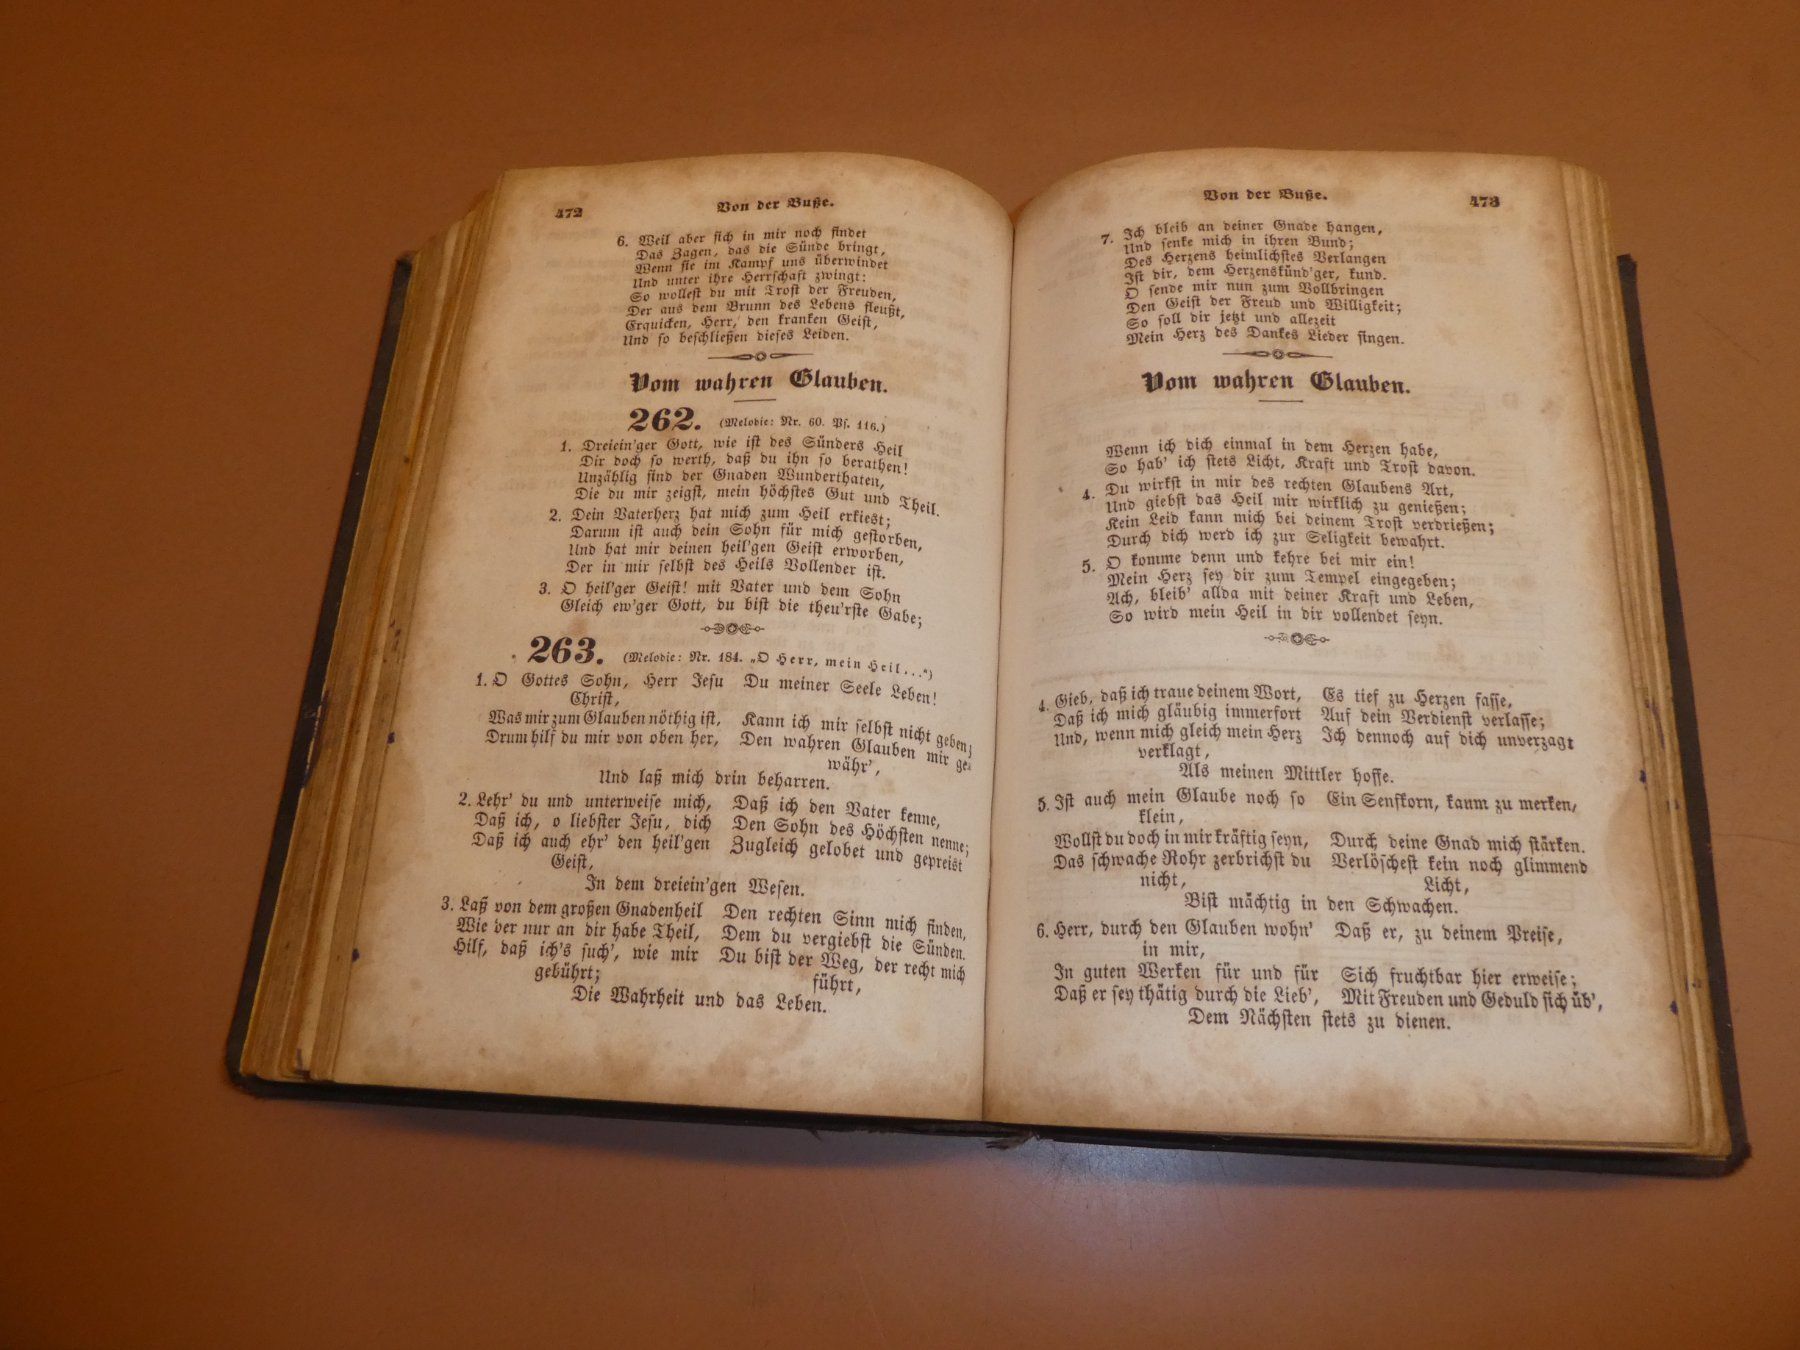 472
Von der Buße.
6. Weil aber sich in mir noch findet
Das Zagen, das die Sünde bringt,
Wenn sie im Kampf uns überwindet
Und unter ihre Herrschaft zwingt:
So wollest du mit Trost der Freuden,
Der aus dem Brunn des Lebens fleußt,
Erquicken, Herr, den kranken Geist,
Und so beschließen dieses Leiden.
Vom wahren Glauben.
262. (Melodie: Nr. 60. Ps. 116.)
1. Dreiein'ger Gott, wie ist des Sünders Heil
Dir doch so werth, daß du ihn so berathen!
Unzählig sind der Gnaden Wunderthaten,
Die du mir zeigst, mein höchstes Gut und Theil.
2. Dein Vaterherz hat mich zum Heil erkiest;
Darum ist auch dein Sohn für mich gestorben,
Und hat mir deinen heil'gen Geist erworben,
Der in mir selbst des Heils Vollender ist.
3. O heil'ger Geist! mit Vater und dem Sohn
Gleich ew'ger Gott, du bist die theu'rste Gabe;
263. (Melodie: Nr. 184. „O Herr, mein Heil ...“)
1. O Gottes Sohn, Herr Jesu Du meiner Seele Leben!
Christ,
Was mir zum Glauben nöthig ist, Kann ich mir selbst nicht geben;
Drum hilf du mir von oben her, Den wahren Glauben mir ge-
währ',
Und laß mich drin beharren.
2. Lehr' du und unterweise mich, Daß ich den Vater kenne,
Daß ich, o liebster Jesu, dich Den Sohn des Höchsten nenne;
Daß ich auch ehr' den heil'gen Zugleich gelobet und gepreist
Geist,
In dem dreiein'gen Wesen.
3. Laß von dem großen Gnadenheil Den rechten Sinn mich finden,
Wie der nur an dir habe Theil, Dem du vergiebst die Sünden.
Hilf, daß ich's such', wie mir Du bist der Weg, der recht mich
gebührt; führt,
Die Wahrheit und das Leben.
Von der Buße.
473
7. Ich bleib an deiner Gnade hangen,
Und senke mich in ihren Bund;
Des Herzens heimlichstes Verlangen
Ist dir, dem Herzenskünd'ger, kund.
O sende mir nun zum Vollbringen
Den Geist der Freud und Willigkeit;
So soll dir jetzt und allezeit
Mein Herz des Dankes Lieder singen.
Vom wahren Glauben.
Wenn ich dich einmal in dem Herzen habe,
So hab' ich stets Licht, Kraft und Trost davon.
4. Du wirkst in mir des rechten Glaubens Art,
Und giebst das Heil mir wirklich zu genießen;
Kein Leid kann mich bei deinem Trost verdrießen;
Durch dich werd ich zur Seligkeit bewahrt.
5. O komme denn und kehre bei mir ein!
Mein Herz sey dir zum Tempel eingegeben;
Ach, bleib' allda mit deiner Kraft und Leben,
So wird mein Heil in dir vollendet seyn.
4. Gieb, daß ich traue deinem Wort, Es tief zu Herzen fasse,
Daß ich mich gläubig immerfort Auf dein Verdienst verlasse;
Und, wenn mich gleich mein Herz Ich dennoch auf dich unverzagt
verklagt,
Als meinen Mittler hoffe.
5. Ist auch mein Glaube noch so Ein Senfkorn, kaum zu merken,
klein,
Wollst du doch in mir kräftig seyn, Durch deine Gnad mich stärken.
Das schwache Rohr zerbrichst du Verlöschest kein noch glimmend
nicht, Licht,
Bist mächtig in den Schwachen.
6. Herr, durch den Glauben wohn' Daß er, zu deinem Preise,
in mir,
In guten Werken für und für Sich fruchtbar hier erweise;
Daß er sey thätig durch die Lieb', Mit Freuden und Geduld sich üb',
Dem Nächsten stets zu dienen.